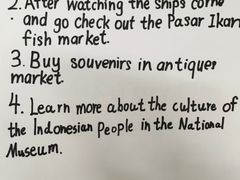 2. After watching the ships come
and go check out the Pasar Ikan
fish market.
3. Buy souvenirs in antiques
market.
4. Learn more about the culture of
the Indonesian People in the National
Museum.